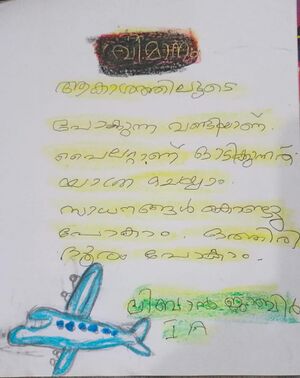 വിമാനം
ആകാശത്തിലൂടെ
പോകുന്ന വണ്ടിയാണ്.
പൈലറ്റാണ് ഓടിക്കുന്നത്
യാത്ര ചെയ്യാം.
സാധനങ്ങൾ കൊണ്ടു
പോകാം. ഒത്തിരി
ദൂരം പോകാം.
I A